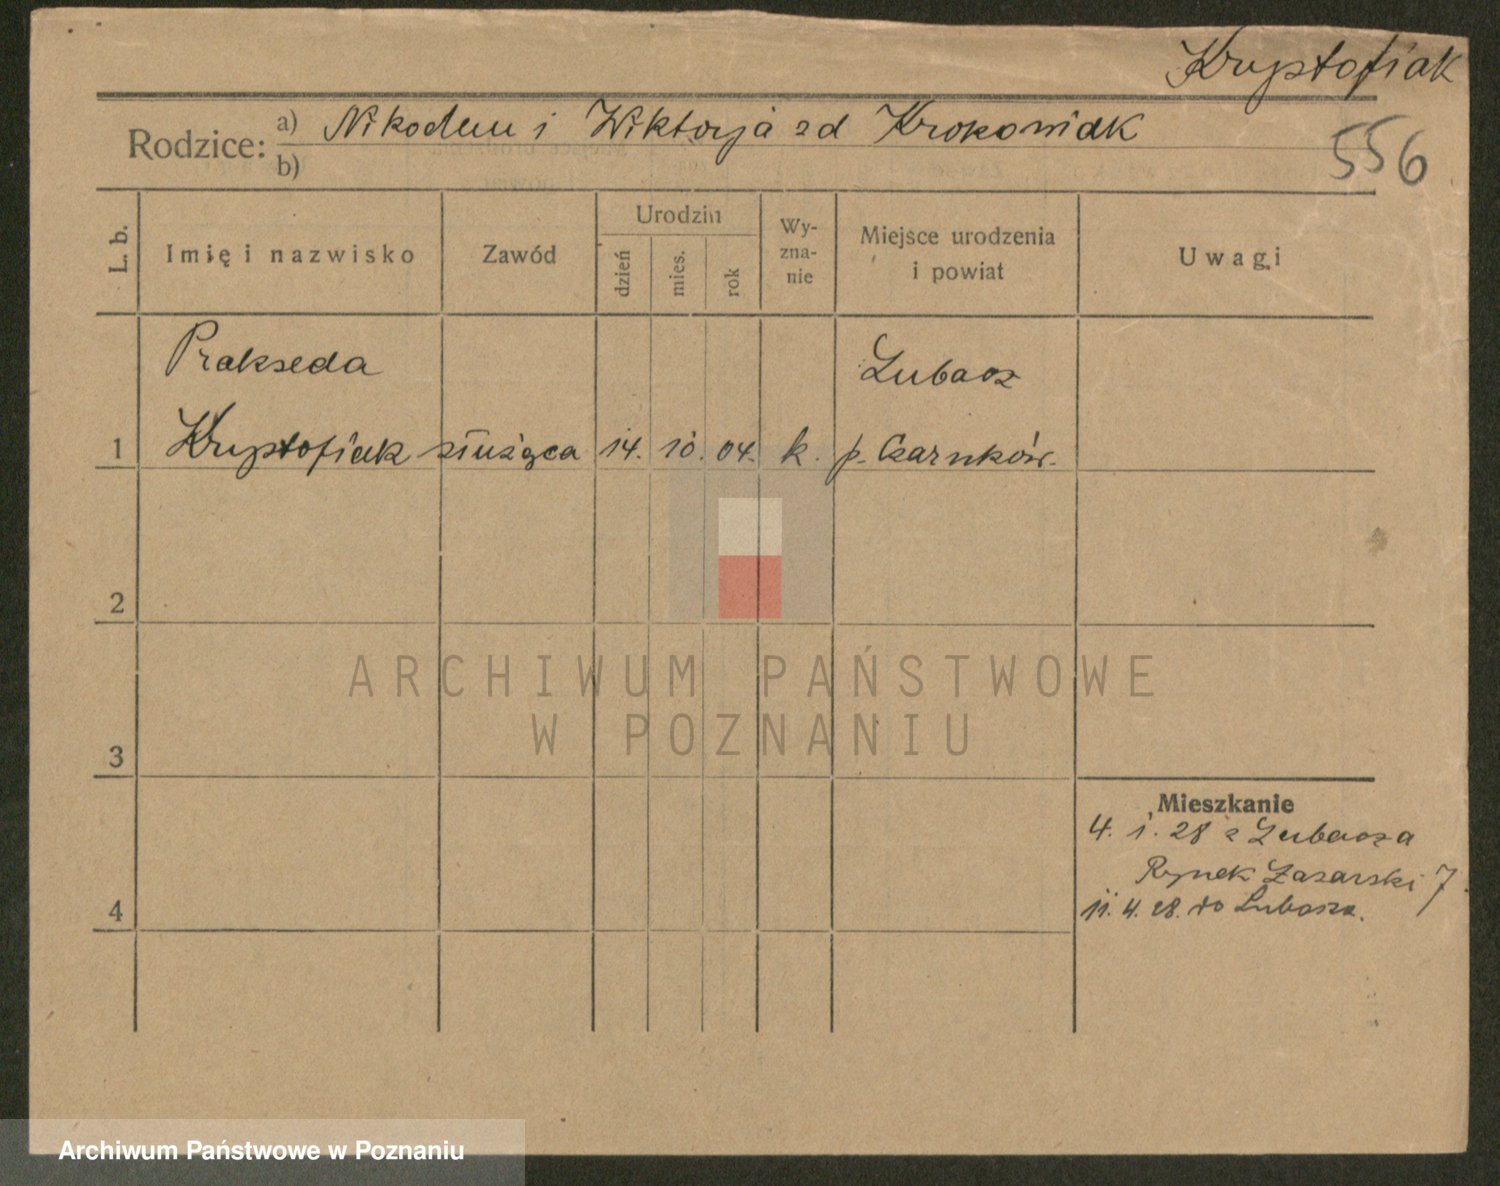 Kryptofiak
Rodzice: a) Nikodem i Wiktorja zd Krokowiak
b)
556
L. b.
Imię i nazwisko
Zawód
Urodzin
dzień
mies.
rok
Wy-
zna-
nie
Miejsce urodzenia
i powiat
Uwagi
Prakseda
Lubasz
1 Kryptofiak służąca 14. 10. 04. k. p. Czarnków.
2
3
4
Mieszkanie
4. 1. 28 z Lubasza
Rynek Łazarski 7
11. 4. 28. do Lubasza.
ARCHIWUM PAŃSTWOWE
W POZNANIU
Archiwum Państwowe w Poznaniu